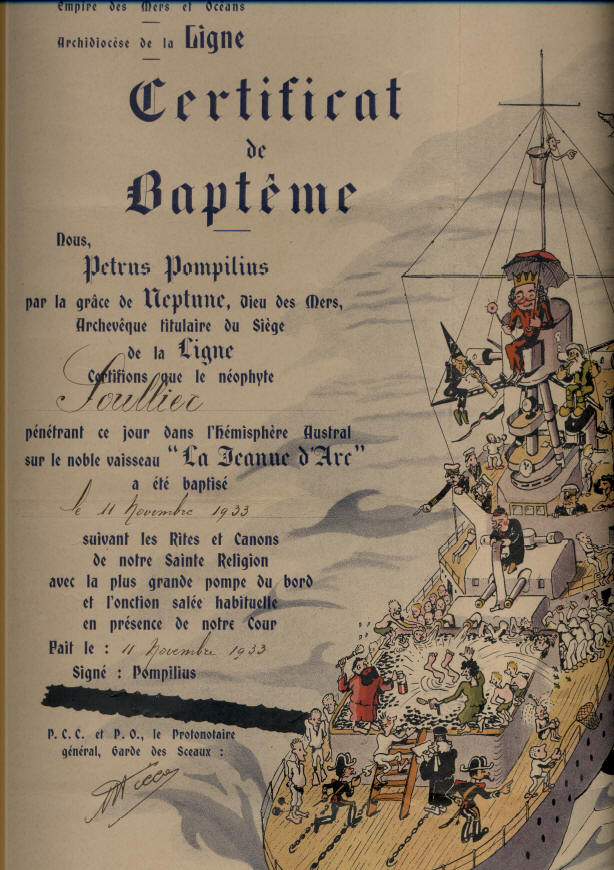 Empire des Mers et Océans
Archidiocèse de la Ligne
Certificat
de
Baptême
Nous,
Petrus Pompilius
par la grâce de Neptune, Dieu des Mers,
Archevêque titulaire du Siège
de la Ligne
Certifions que le néophyte
Soullier
pénétrant ce jour dans l'hémisphère Austral
sur le noble vaisseau "La Jeanne d'Arc"
a été baptisé
le 11 Novembre 1933
suivant les Rites et Canons
de notre Sainte Religion
avec la plus grande pompe du bord
et l'onction salée habituelle
en présence de notre Cour
Fait le : 11 Novembre 1933
Signé : Pompilius
P.C.C. et P.O., le Protonotaire
général, Garde des Sceaux :